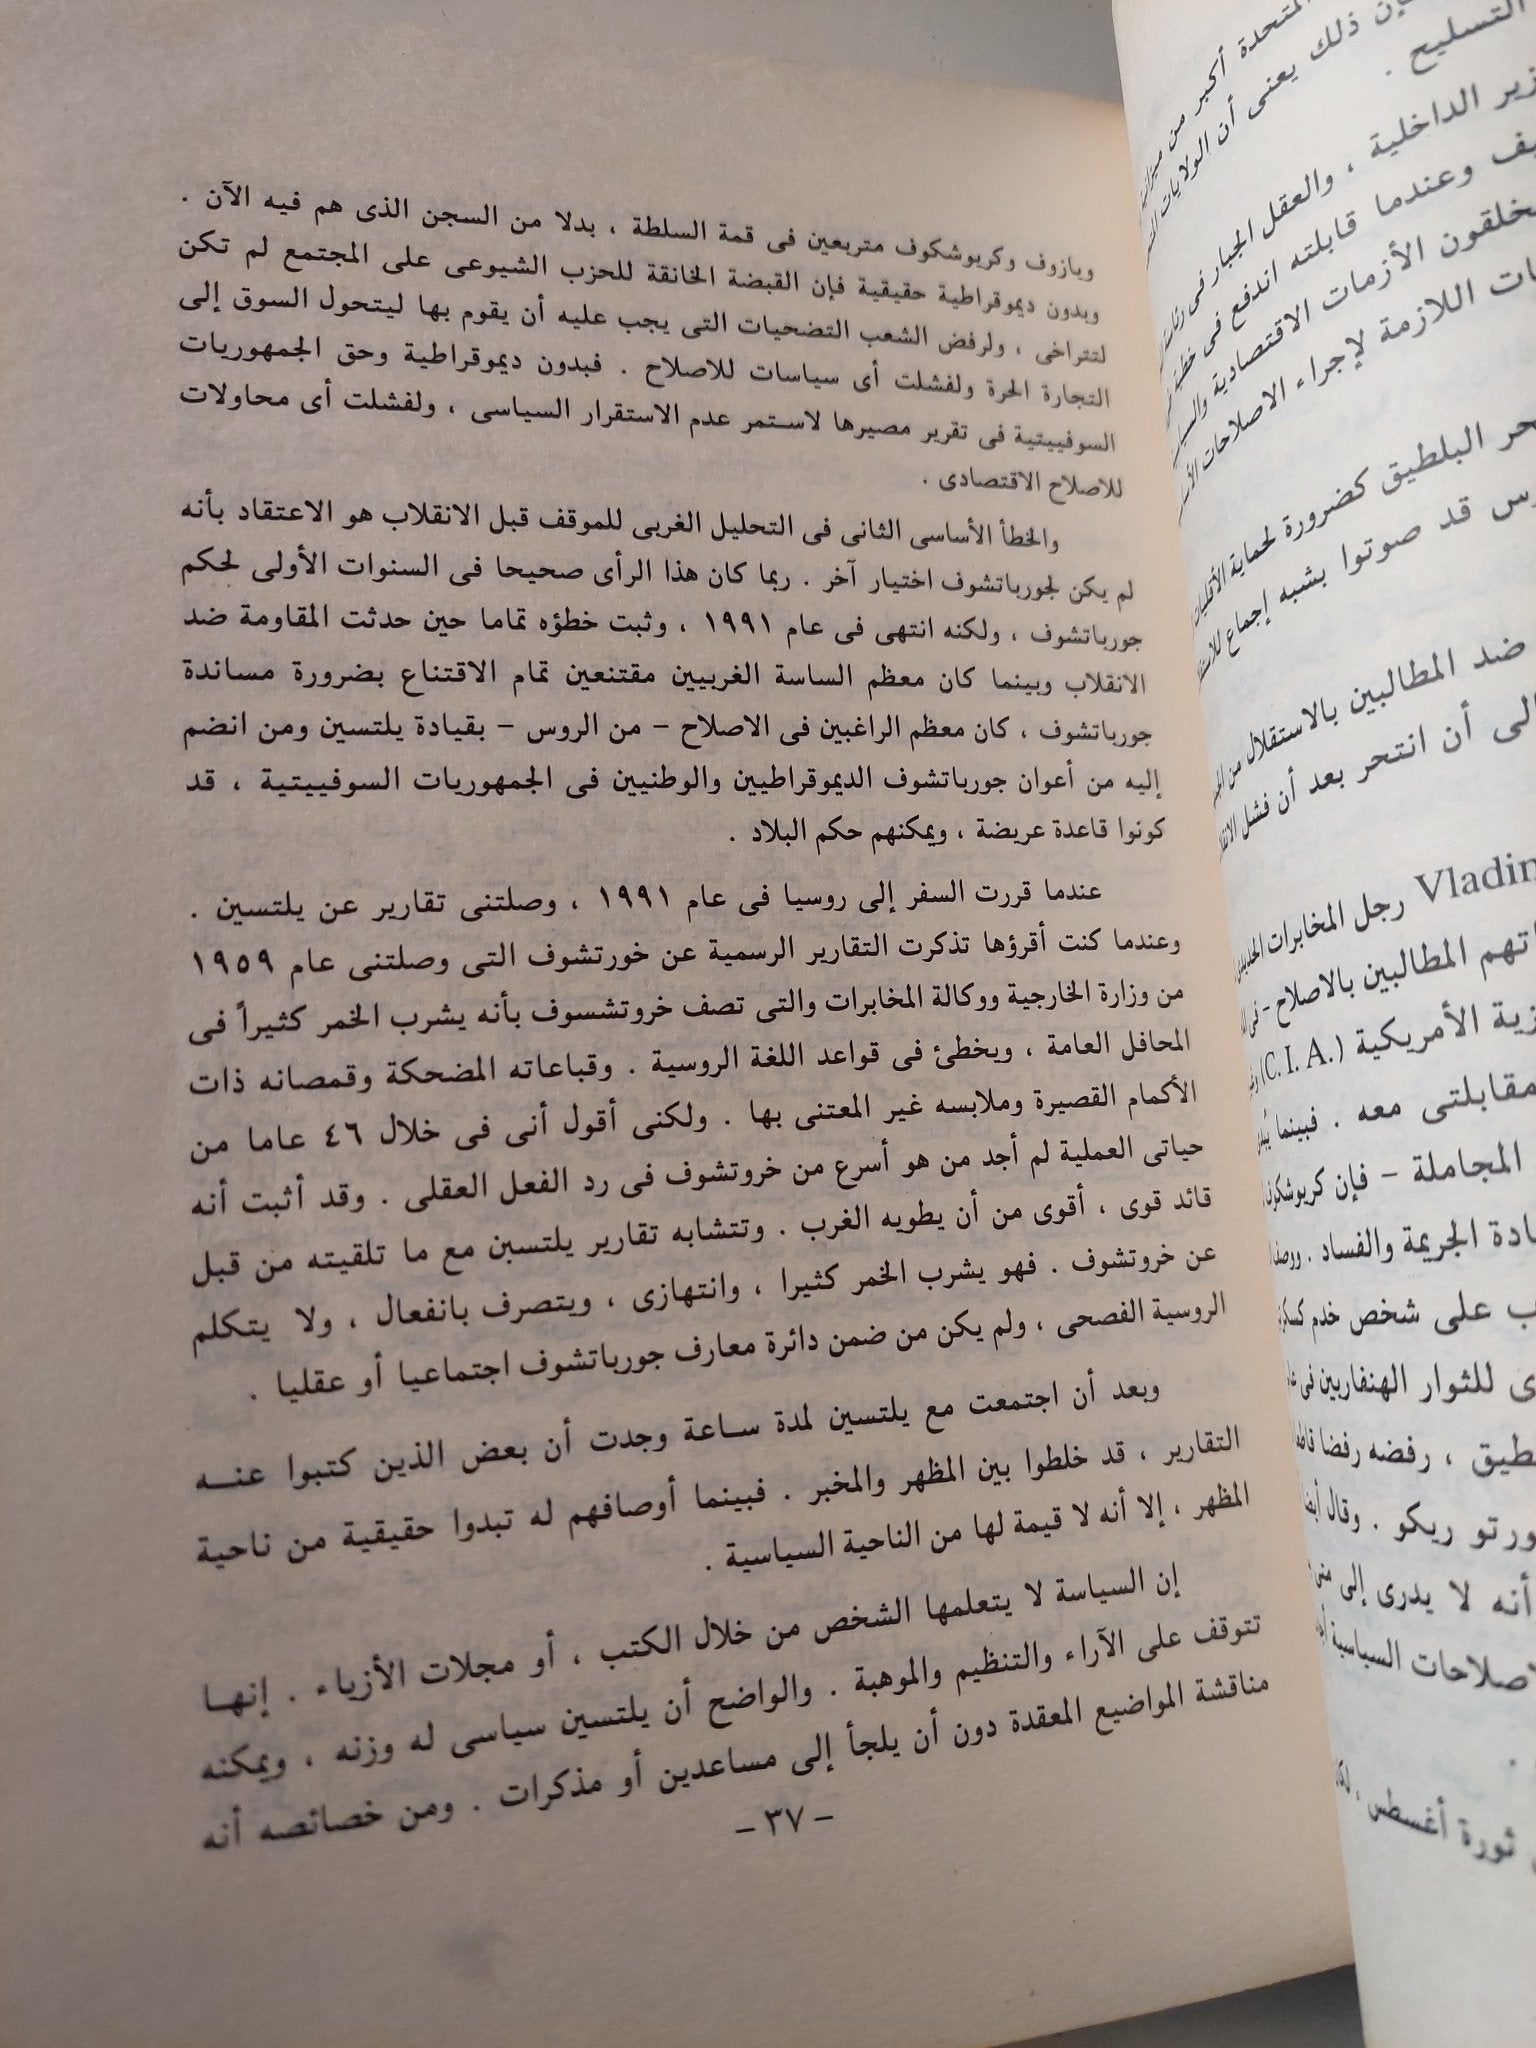 ويازوف وكريوشكوف متربعين فى قمة السلطة ، بدلا من السجن الذى هم فيه الآن .
وبدون ديموقراطية حقيقية فإن القبضة الخانقة للحزب الشيوعى على المجتمع لم تكن
لتتراخى ، ولرفض الشعب التضحيات التى يجب عليه أن يقوم بها ليتحول السوق إلى
التجارة الحرة ولفشلت أى سياسات للاصلاح . فبدون ديموقراطية وحق الجمهوريات
السوفييتية فى تقرير مصيرها لاستمر عدم الاستقرار السياسى ، ولفشلت أى محاولات
للاصلاح الاقتصادى .
والخطأ الأساسى الثانى فى التحليل الغربى للموقف قبل الانقلاب هو الاعتقاد بأنه
لم يكن لجورباتشوف اختيار آخر . ربما كان هذا الرأى صحيحا فى السنوات الأولى لحكم
جورباتشوف ، ولكنه انتهى فى عام ١٩٩١ ، وثبت خطؤه تماما حين حدثت المقاومة ضد
الانقلاب وبينما كان معظم الساسة الغربيين مقتنعين تمام الاقتناع بضرورة مساندة
جورباتشوف ، كان معظم الراغبين فى الاصلاح – من الروس – بقيادة يلتسين ومن انضم
إليه من أعوان جورباتشوف الديموقراطيين والوطنيين فى الجمهوريات السوفييتية ، قد
كونوا قاعدة عريضة ، ويمكنهم حكم البلاد .
عندما قررت السفر إلى روسيا فى عام ١٩٩١ ، وصلتنى تقارير عن يلتسين .
وعندما كنت أقرؤها تذكرت التقارير الرسمية عن خورتشوف التى وصلتنى عام ١٩٥٩
من وزارة الخارجية ووكالة المخابرات والتى تصف خروتشسوف بأنه يشرب الخمر كثيراً فى
المحافل العامة ، ويخطئ فى قواعد اللغة الروسية . وقباعاته المضحكة وقمصانه ذات
الأكمام القصيرة وملابسه غير المعتنى بها . ولكنى أقول أنى فى خلال ٤٦ عاما من
حياتى العملية لم أجد من هو أسرع من خروتشوف فى رد الفعل العقلى . وقد أثبت أنه
قائد قوى ، أقوى من أن يطويه الغرب . وتتشابه تقارير يلتسين مع ما تلقيته من قبل
عن خروتشوف . فهو يشرب الخمر كثيرا ، وانتهازى ، ويتصرف بانفعال ، ولا يتكلم
الروسية الفصحى ، ولم يكن من ضمن دائرة معارف جورباتشوف اجتماعيا أو عقليا .
وبعد أن اجتمعت مع يلتسين لمدة ساعة وجدت أن بعض الذين كتبوا عنه
التقارير ، قد خلطوا بين المظهر والمخبر . فبينما أوصافهم له تبدوا حقيقية من ناحية
المظهر ، إلا أنه لا قيمة لها من الناحية السياسية .
إن السياسة لا يتعلمها الشخص من خلال الكتب ، أو مجلات الأزياء . إنها
تتوقف على الآراء والتنظيم والموهبة . والواضح أن يلتسين سياسى له وزنه ، ويمكنه
مناقشة المواضيع المعقدة دون أن يلجأ إلى مساعدين أو مذكرات . ومن خصائصه أنه
– ٣٧ –
المتحدة أكبر من
فإن ذلك يعنى أن الولايات
التسليح .
الداخلية ، والعقل الجبار فى
وعندما قابلته اندفع فى خطبة
يخلقون الأزمات الاقتصادية
اللازمة لإجراء الاصلاحات
البلطيق كضرورة لحماية الأقليات
قد صوتوا بشبه إجماع
ضد المطالبين بالاستقلال من
أن انتحر بعد أن فشل
رجل المخابرات
المطالبين بالاصلاح – فى
الأمريكية (C. I. A.)
مقابلتى معه . فبينما
المجاملة – فإن كريوشكوف
الجريمة والفساد .
على شخص خدم
للثوار الهنغاريين فى
، رفضه رفضا
ريكو . وقال
أنه لا يدرى إلى
السياسية
ثورة أغسطس ،